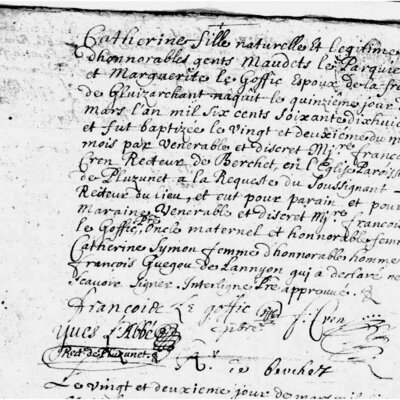 Catherine fille naturelle Et Legitime
d'honnorables gents Maudets le Parquie
et Marguerite le Goffic Espoux de la fre
de Gluizarchant naquit le quinziéme jour d
mars l'an mil six cents soixante dixhuict
et fut baptizée le vingt et deuxiéme du m
mois par Venerable et discret Mire francois
Cren Recteur de Berchet, en l'Eglise Paroiss
de Pluzunet a la Requeste du Soussignant
Recteur du lieu, et eut pour parain et pour
Maraine Venerable et discret Mire francois
le Goffic, Pbre Oncle maternel et honnorable femme
Catherine Symon femme d'honnorable homme
François Guegou de Lannyon qui a declaré ne
Scavoir Signer. Interligne Pbre approuvé.
François Le goffic
pbre f. Cren
Yves l'Abbé
Rect. de Pluzunet. R. de berchet
Le vingt et deuxiéme jour de mars mil